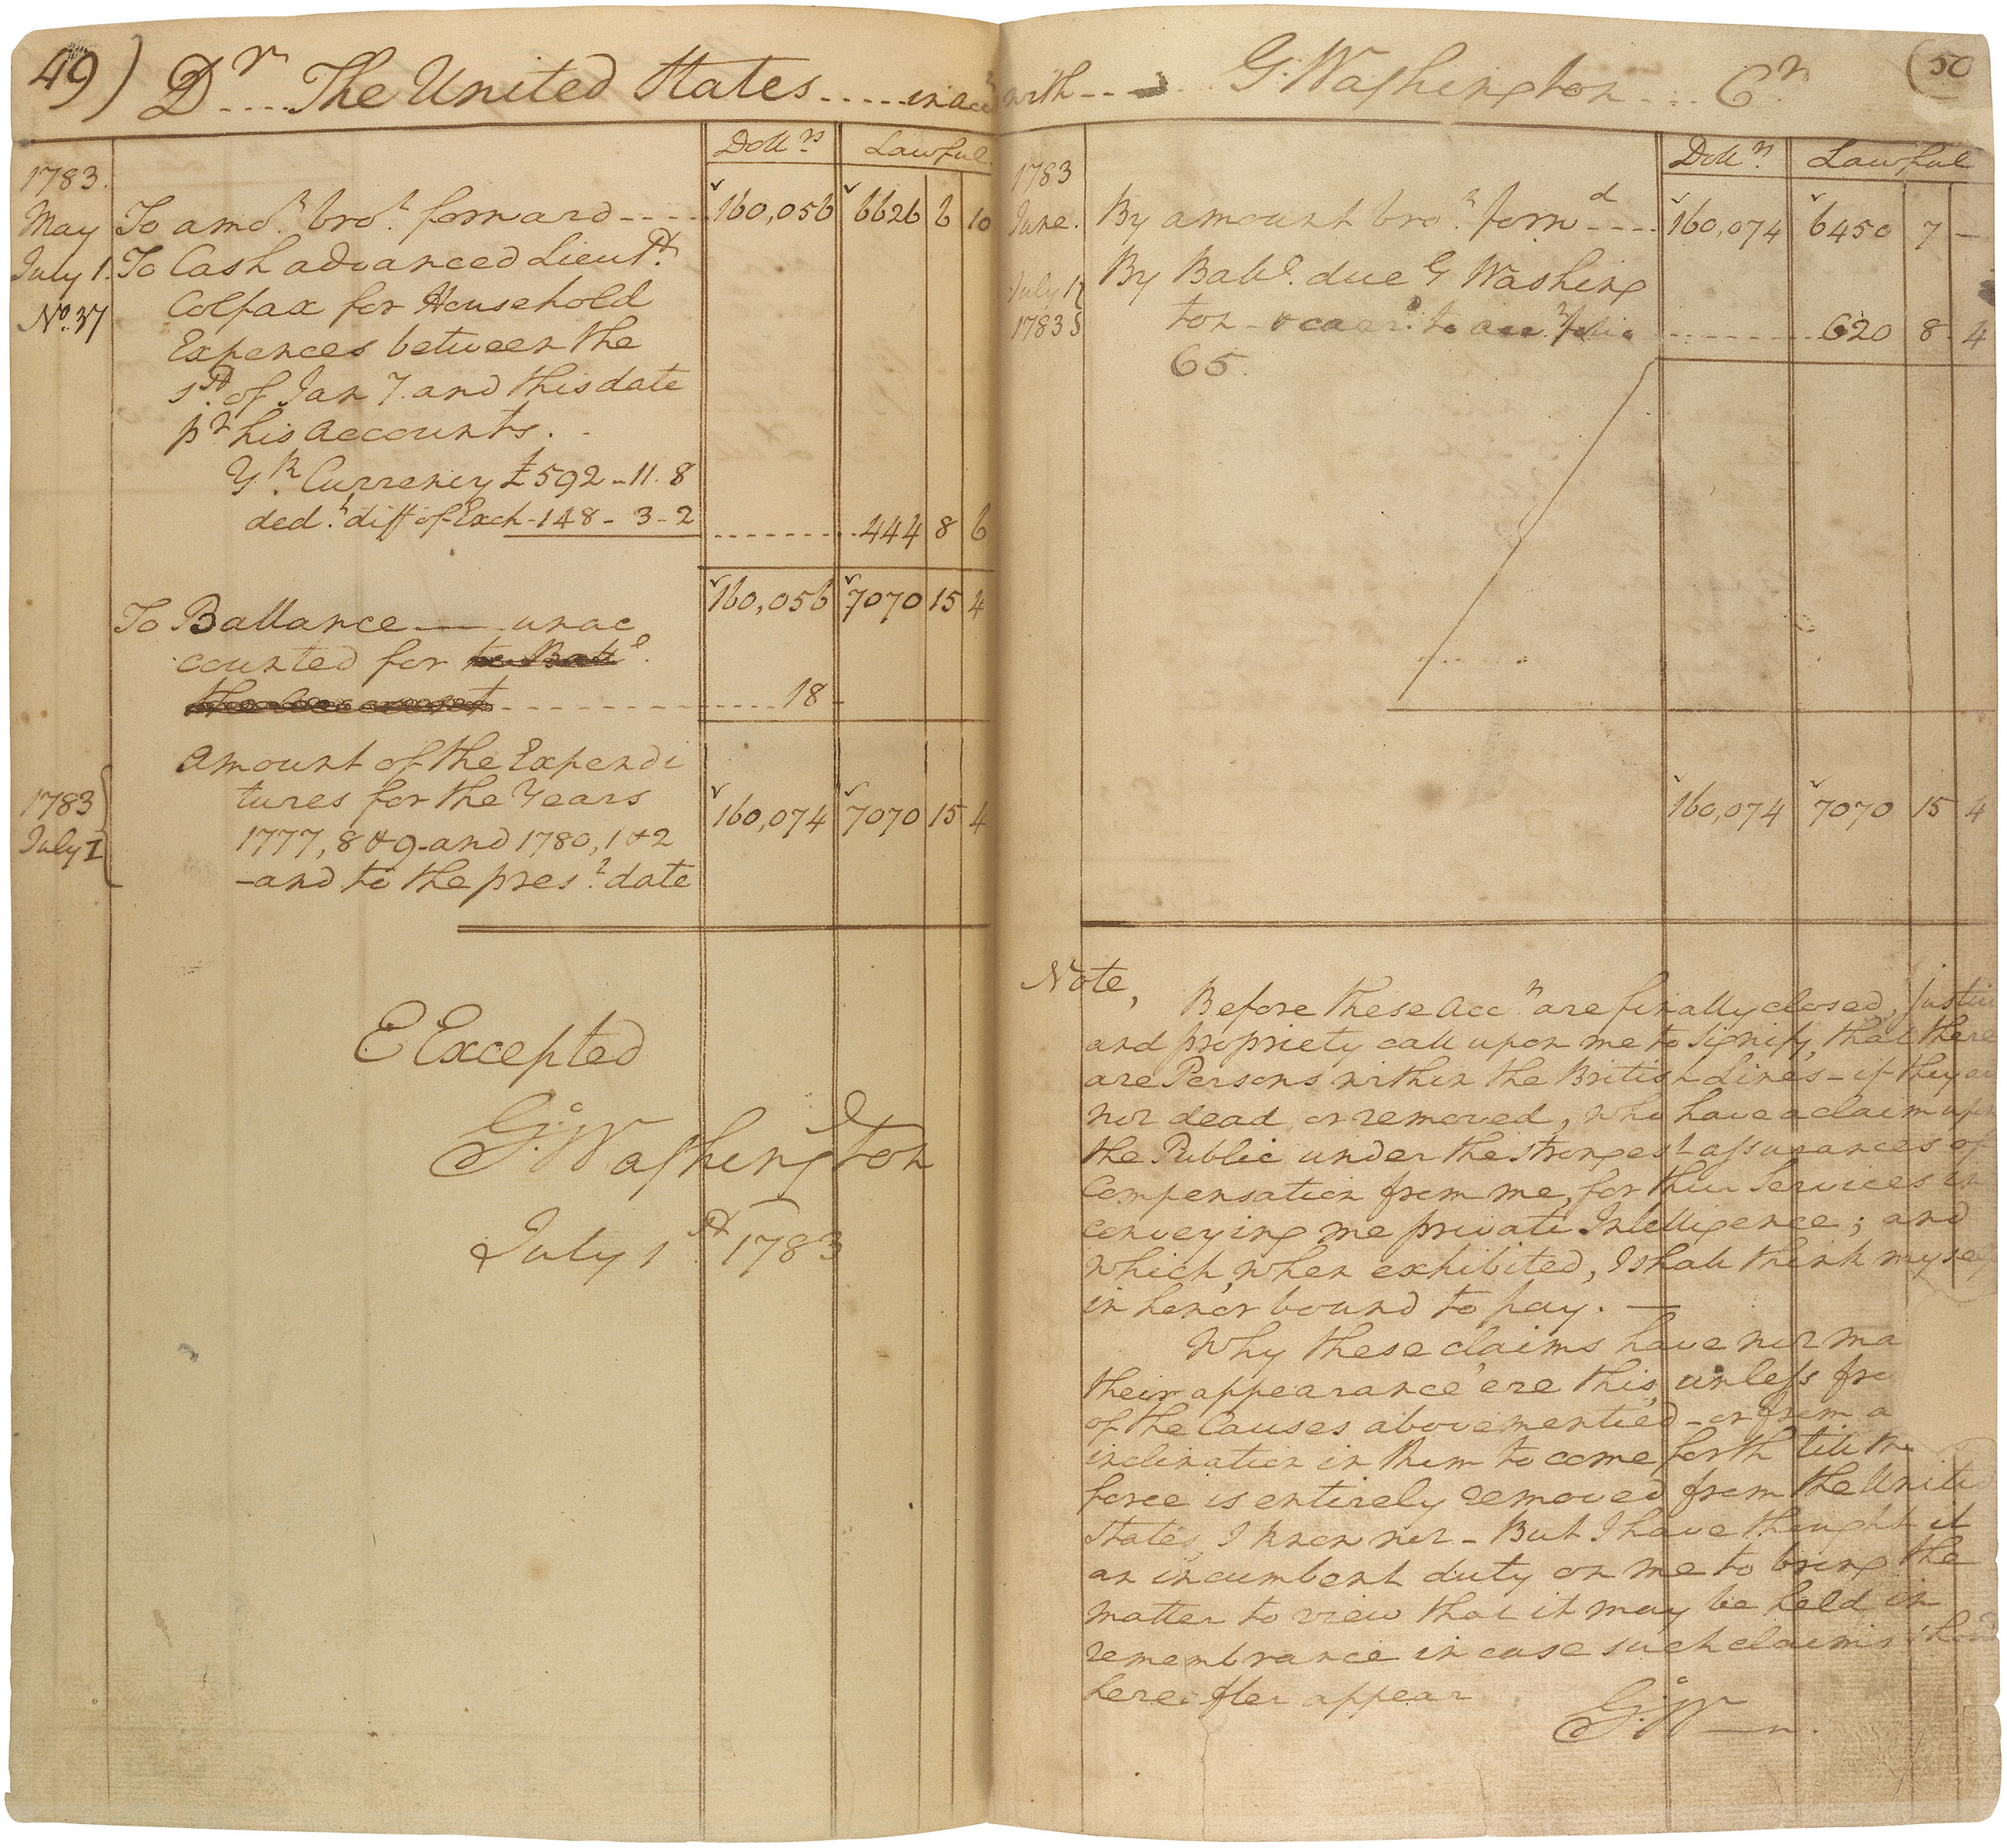 49)
Dr .... The United States ..... in acct
1783.
Dollrs Lawful
May To amot brot forward ---- 160,056 6626 6 10
July 1. To Cash advanced Lieutt
No. 37 Colfax for Household
Expences between the
1st of Jany. and this date
pr his accounts.
Yk Currency £592-11.8
dedt diff of Exch-148-3-2 ........ 444 8 6
160,056 7070 15 4
To Ballance —— unac
counted for to Balle
the account ------- 18 -
Amount of the Expendi
1783 tures for the Years 160,074 7070 15 4
July 1 1777, 8 & 9-and 1780, 1 & 2
-and to the prest date
E Excepted
Go: Washington
July 1st 1783
with ---- G: Washington .... Cr (50
1783 Dollrs Lawful
June. By amount brot forwd ---- 160,074 6450 7 -
July 1 By Balle due G Washing
1783 ton - & carrd to acct folio ......... 620 8 4
65.
160,074 7070 15 4
Note,
Before these accts are finally closed, justice
and propriety call upon me to signify, that there
are Persons within the British Lines - if they are
not dead or removed, who have a claim upon
the Public under the strongest assurances of
Compensation from me, for their Services in
conveying me private Intelligence; and
which, when exhibited, I shall think myself
in honor bound to pay. —
Why these claims have not ma
their appearance 'ere this, unless fro
of the Causes abovementied - or from a
inclination in them to come forth till the
force is entirely removed from the United
States, I know not - But I have thought it
an incumbent duty on me to bring the
matter to view that it may be held in
remembrance in case such claims should
hereafter appear
Go: W——n.